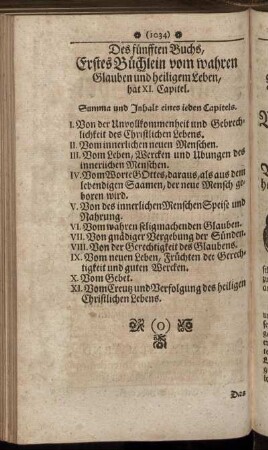 (1034)
Des fünfften Buchs,
Erstes Büchlein vom wahren
Glauben und heiligem Leben,
hat XI. Capitel.
Summa und Inhalt eines ieden Capitels.
I. Von der Unvollkommenheit und Gebrech-
lichkeit des Christlichen Lebens.
II. Vom innerlichen neuen Menschen.
III. Vom Leben, Wercken und Ubungen des
innerlichen Menschen.
IV. Vom Worte GOttes, daraus, als aus dem
lebendigen Saamen, der neue Mensch ge-
boren wird.
V. Von des innerlichen Menschen Speise und
Nahrung.
VI. Vom wahren seligmachenden Glauben.
VII. Von gnädiger Vergebung der Sünden.
VIII. Von der Gerechtigkeit des Glaubens.
IX. Vom neuen Leben, Früchten der Gerech-
tigkeit und guten Wercken.
X. Vom Gebet.
XI. Vom Creutz und Verfolgung des heiligen
Christlichen Lebens.
(o)
Das